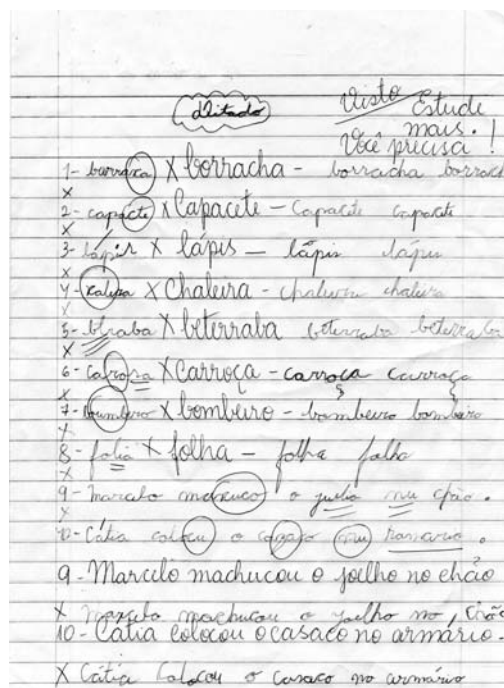 ditado
Visto Estude
mais.
Você precisa!
1- barraxa X borracha - borracha borrach
X
2- capacte X Capacete - Capacete capacete
X
3- lápis X lápis - lápis lápis
X
4- xalera X Chaleira - chaleira chaleira
X
5- btraba X beterraba beterraba beterraba
X
6- carosa X Carroça - carroça carroça
X
7- boumbero X bombeiro - bombeiro bombeiro
X
8- folia X folha - folha folha
X
9- marcelo machuco o juelio nu chão.
X
10- Cátia colocou o cazaco nu ramario.
9- Marcelo machucou o joelho no chão
X Marcelo machucou o joelho no chão
10- Cátia colocou o casaco no armário.
X Cátia colocou o casaco no armário